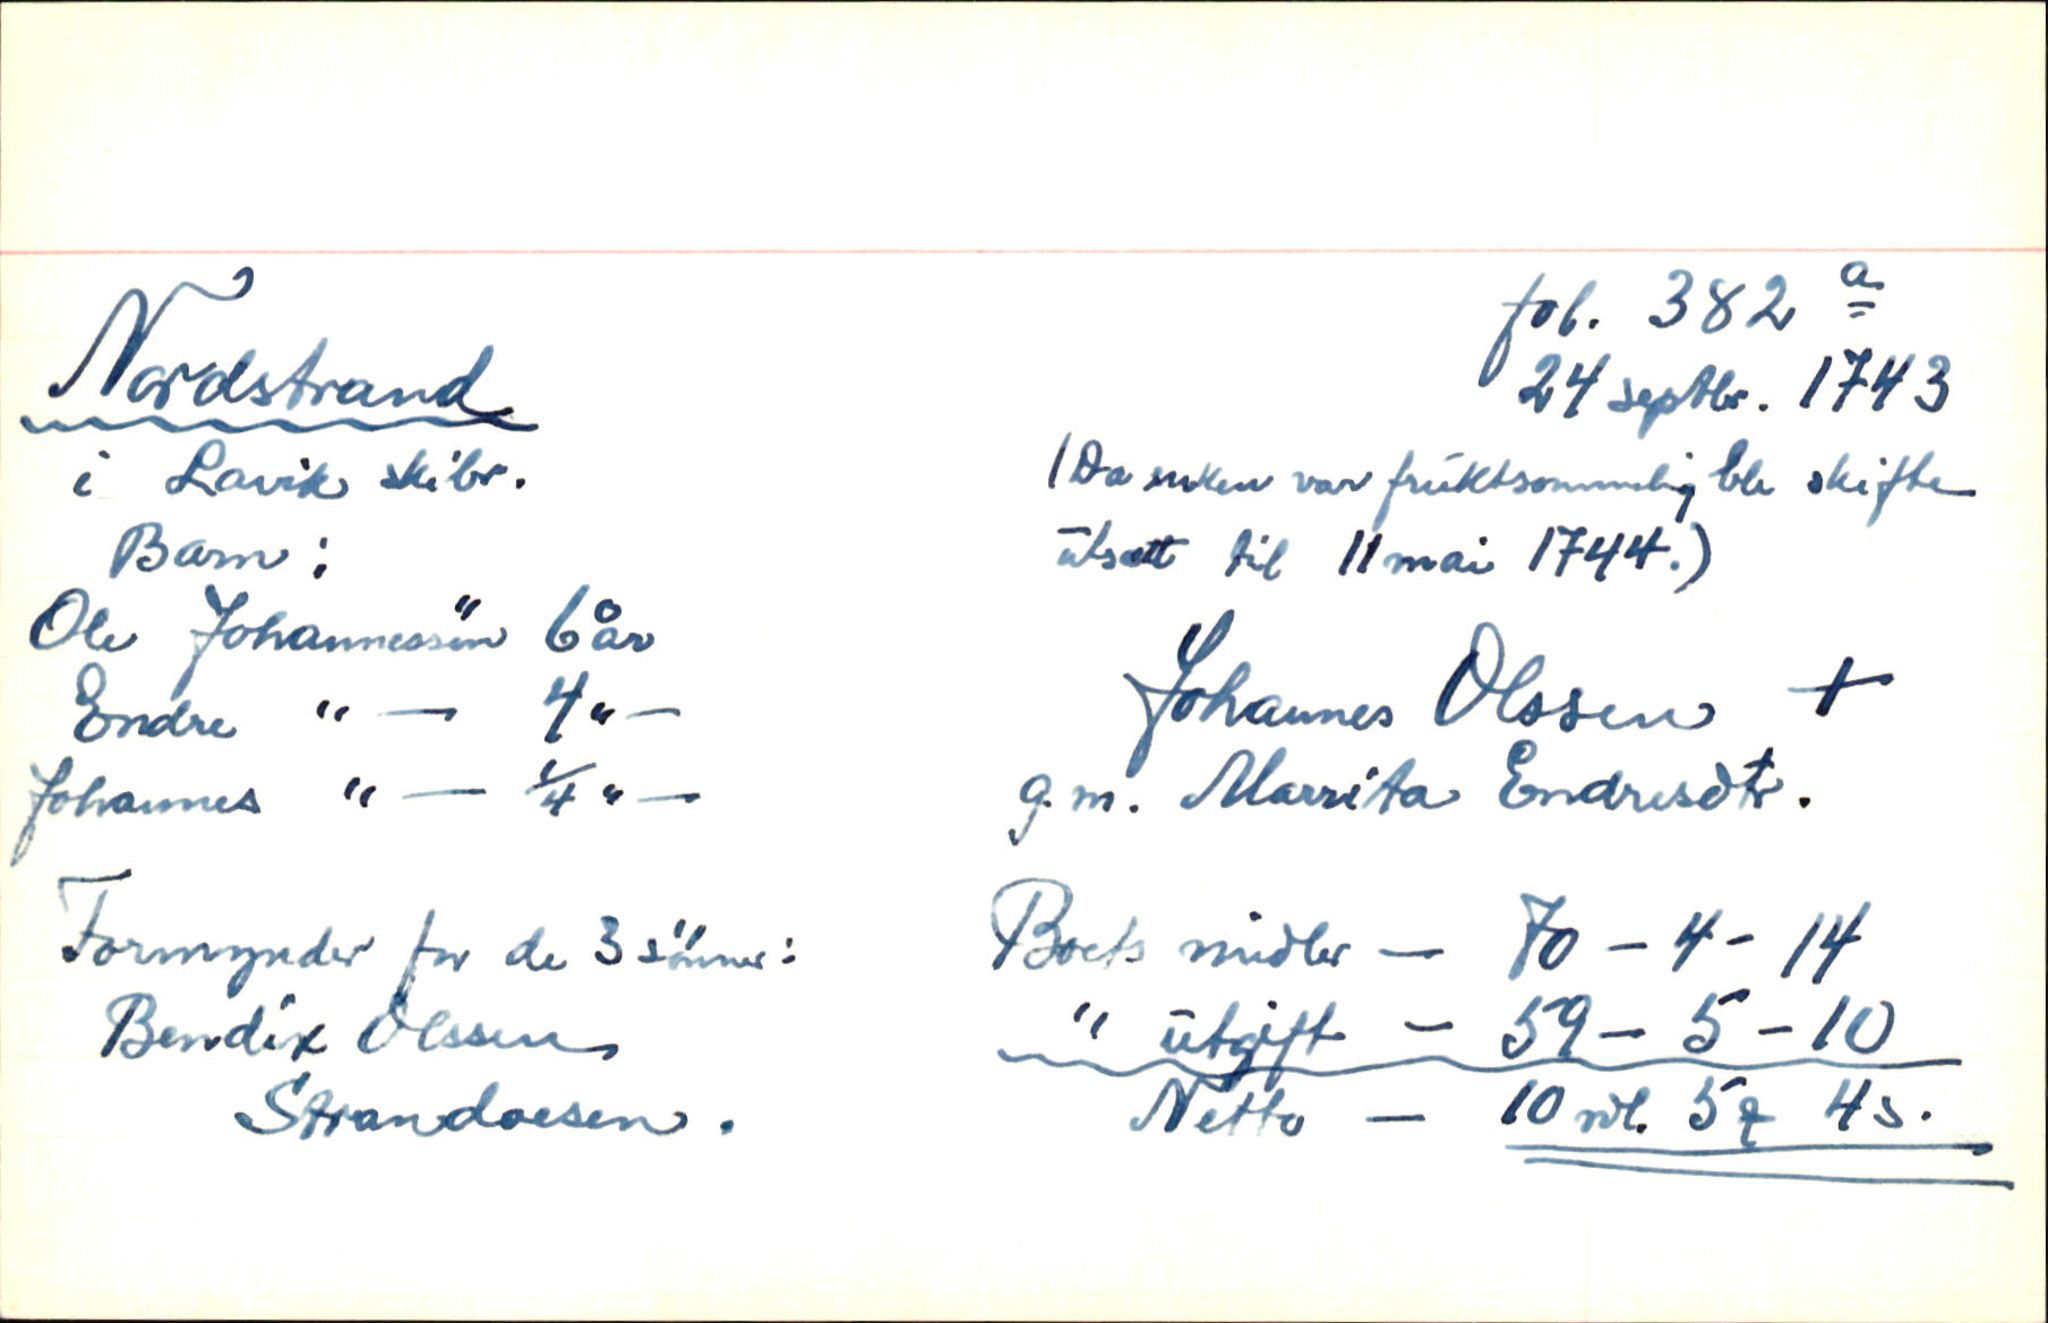 fol. 382 a
24 septbr. 1743
Nordstrand
i Lavik skibr.
Barn:
Ole Johannessön 6 år
Endre " — 4 " —
Johannes " — 1/4 " —
Formynder for de 3 sönner:
Bendix Olssen
Strandoesen.
(Da enken var fruktsommelig ble skifte
utsatt til 11 mai 1744.)
Johannes Olssen +
g.m. Marrita Endresdtr.
Boets midler — 70 - 4 - 14
" utgift - 59 - 5 - 10
Netto — 10 rdl. 5 ₰ 4 s.